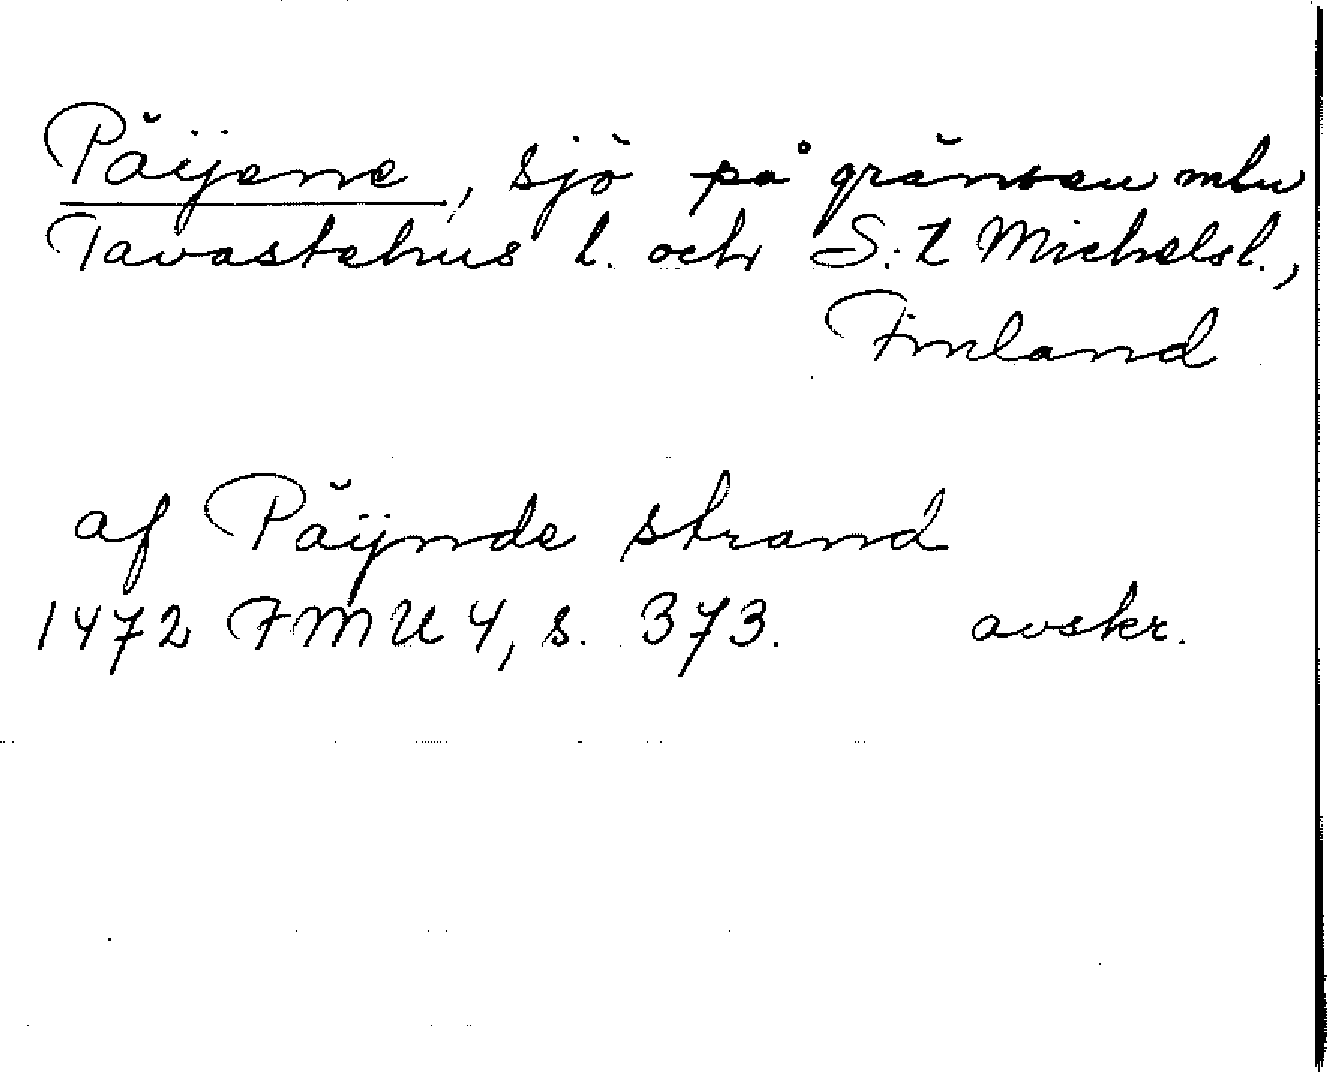 Päijene, sjö på gränsen mln
Tavastehus l. och S:t Michelsl.,
Finland
af Päijnde strand
1472 FMU 4, s. 373. avskr.